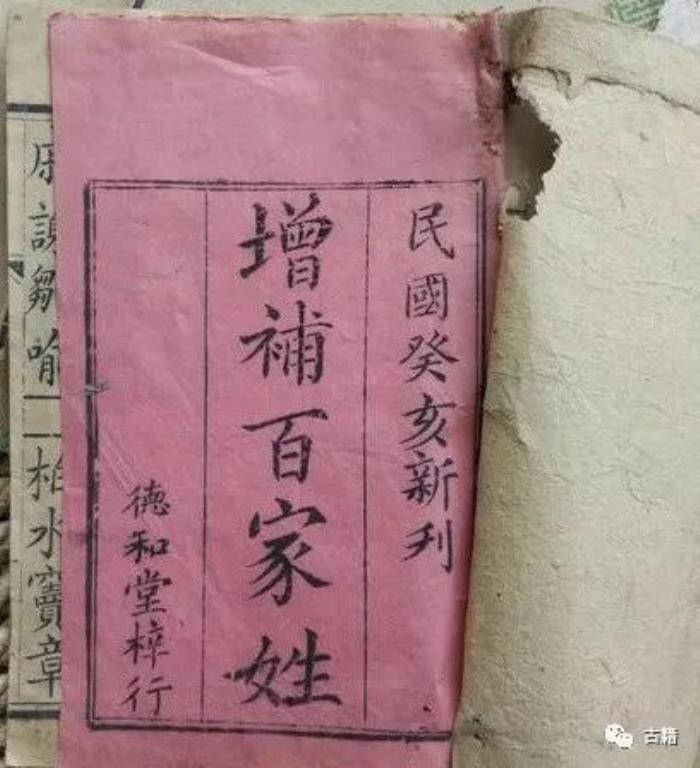 民國癸亥新刋
增補百家姓
德和堂梓行
戚謝鄒喻
柏水竇章
古籍